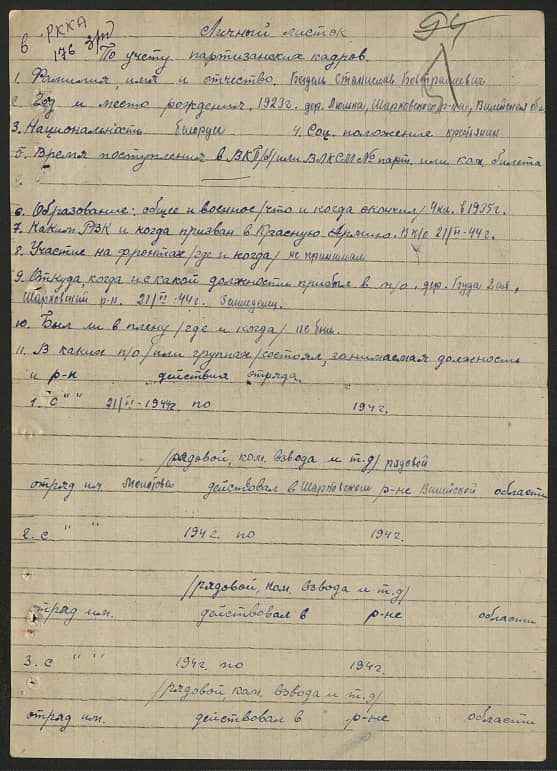 в РККА
176 зрп
94
Личный листок
По учету партизанских кадров.
1. Фамилия, имя и отчество. Бидель Станислав Евтрапиевич
2. Год и место рождения, 1923г. дер. Люшка, Шарковского р-на, Вилейская обл
3. Национальность белорус 4. Соц. положение крестьянин
5. Время поступления в ВКП/б/или ВЛКСМ № парт. или кан. билета
6. Образование: общее и военное/что и когда окончил/ 4 кл. в 1935г.
7. Каким РВК и когда призван в Красную Армию. В п/о 21/II-44г.
8. Участие на фронтах/где и когда/ не принимал
9. Откуда, когда и с какой должности прибыл в п/о. дер. Буда 2ая,
Шарковский р-н. 21/II-44г.
10. Был ли в плену/где и когда/ не был.
11. В каких п/о/или группах/состоял, занимаемая должность
и р-н действия отряда.
1. с " " 21/II-1944г. по 194 г.
/рядовой, ком. взвода и т.д/ рядовой
отряд им. Молотова действовал в Шарковском р-не Вилейской области
2. с " " 194 г. по 194 г.
/рядовой, ком. взвода и т.д/
отряд им. действовал в р-не области
3. с " " 194 г. по 194 г.
/рядовой ком. взвода и т.д/
отряд им. действовал в р-не области